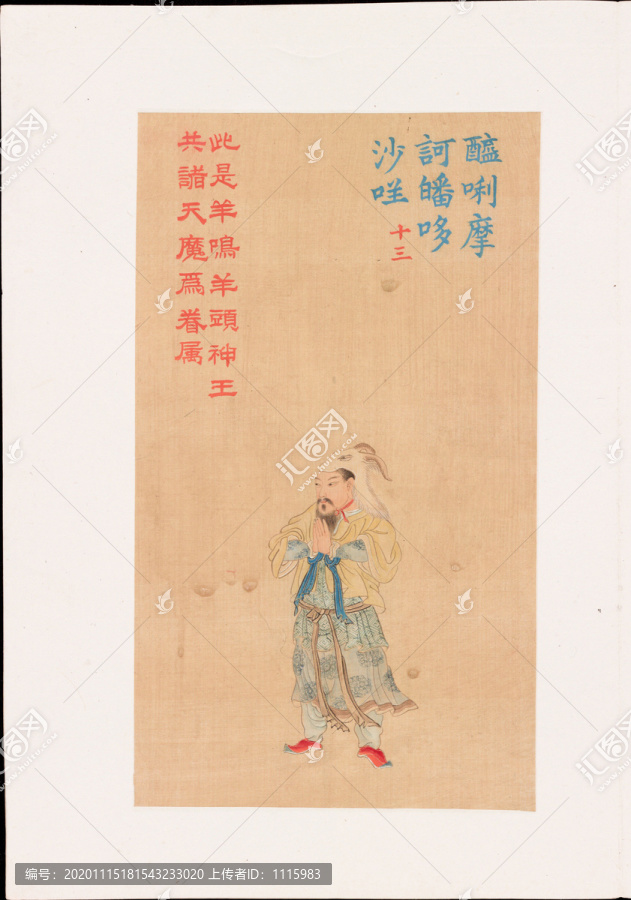 醯唎摩
訶皤哆
沙咩
十三
此是羊鳴羊頭神王
共諸天魔爲眷属
汇图网
www.huitu.com
编号：20201115181543233020 上传者ID：1115983